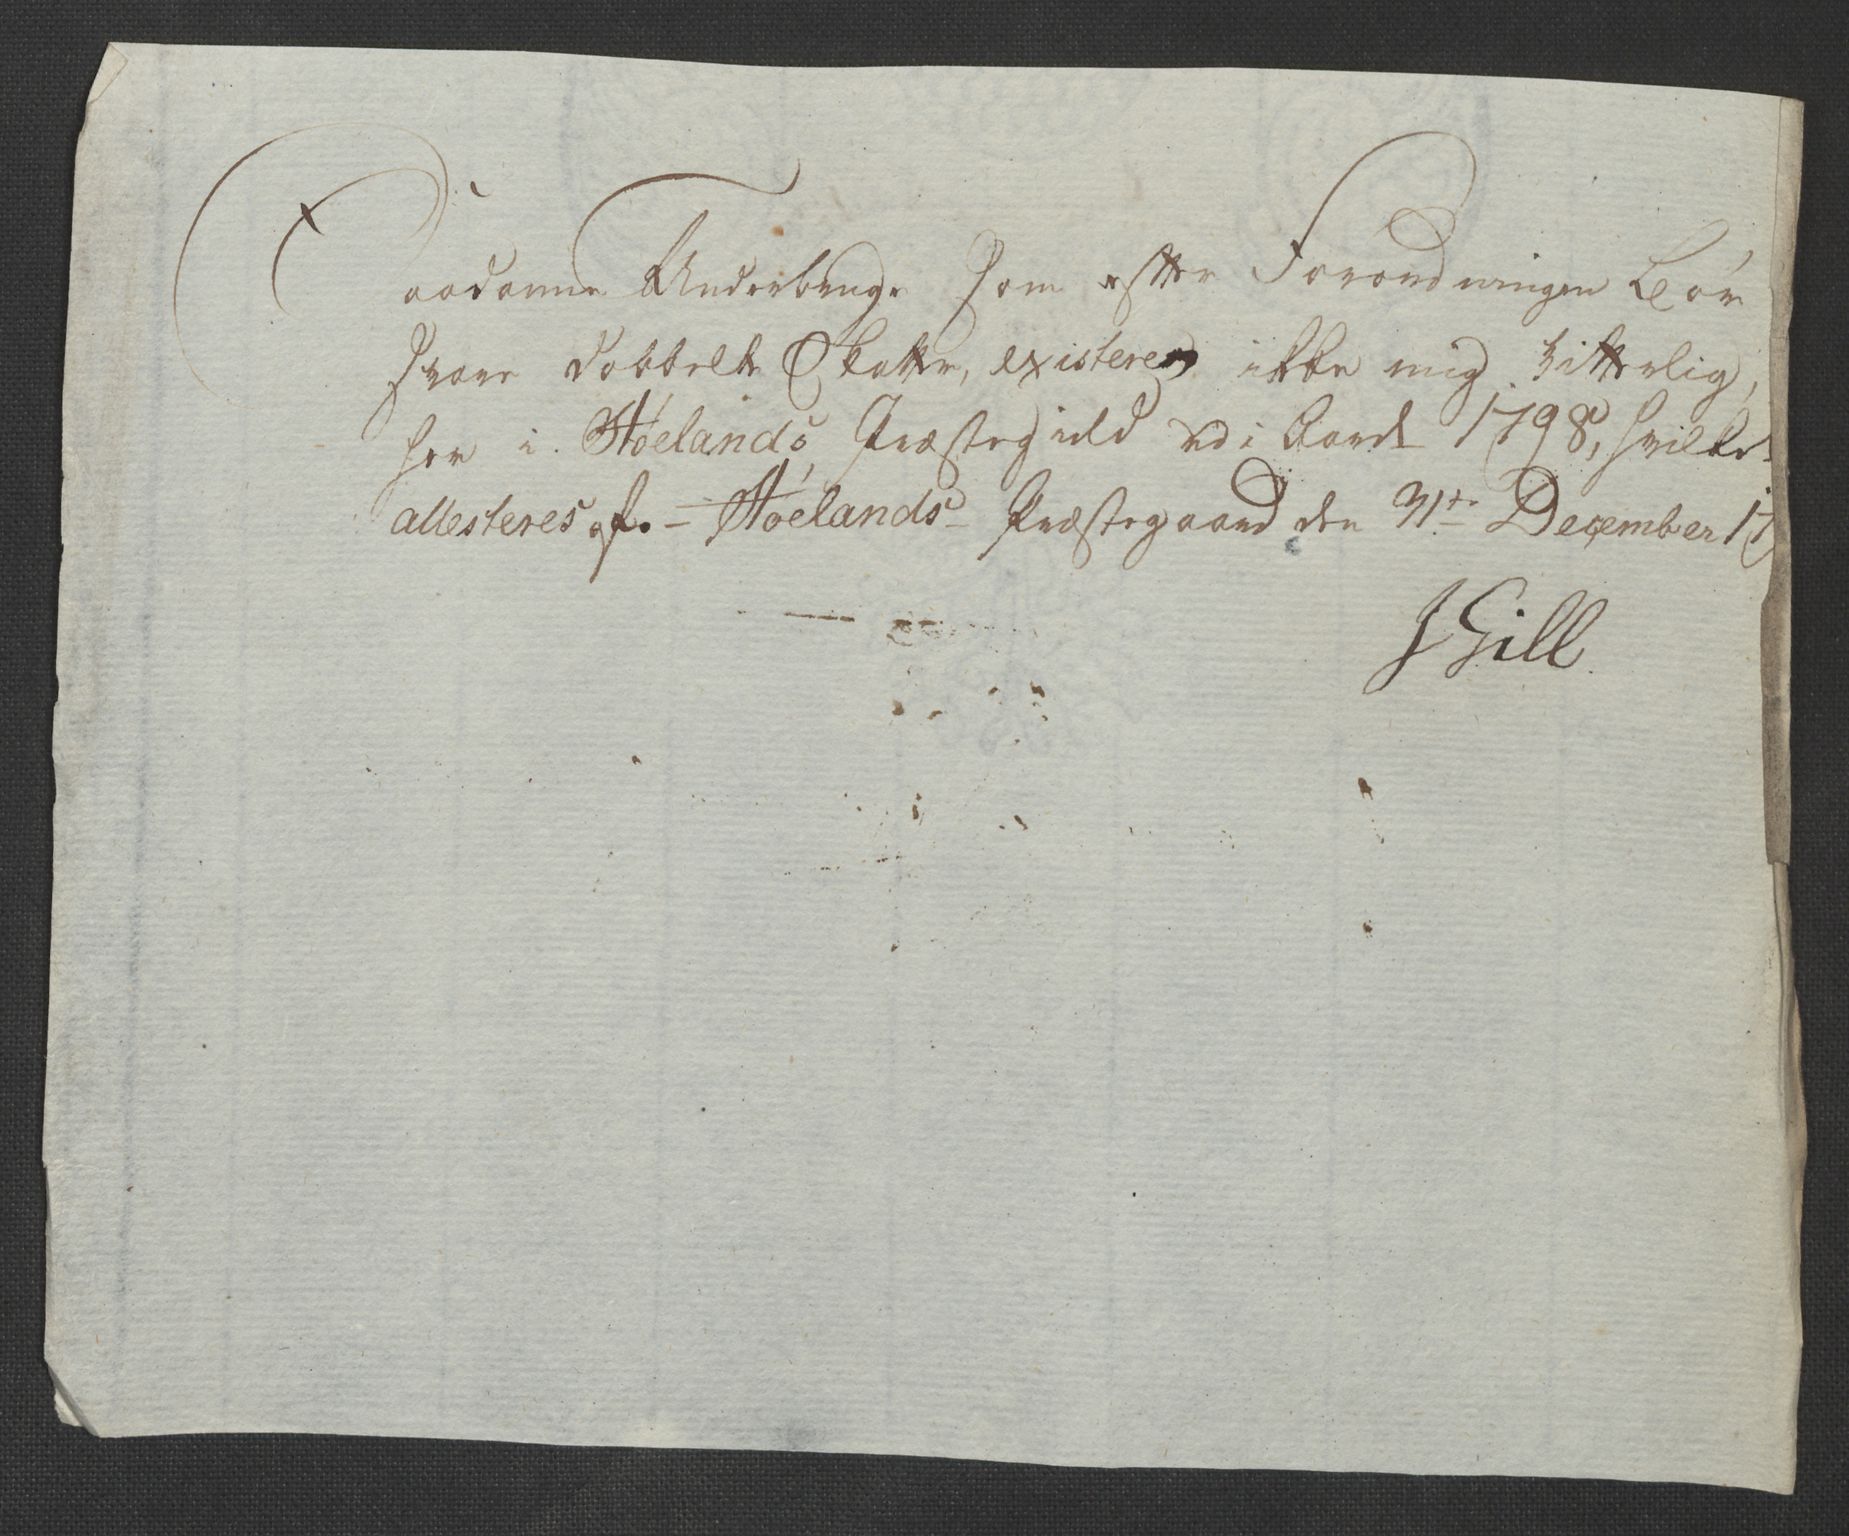 Saadanne Underbruge som efter Forordningen bør
svare dobbelte Skatter, existerer ikke mig vitterlig,
her i Høelands Præstegield udi Aaret 1798, hvilket
attesteres af. – Høelands Præstegaard den 31te December 17
J Gill